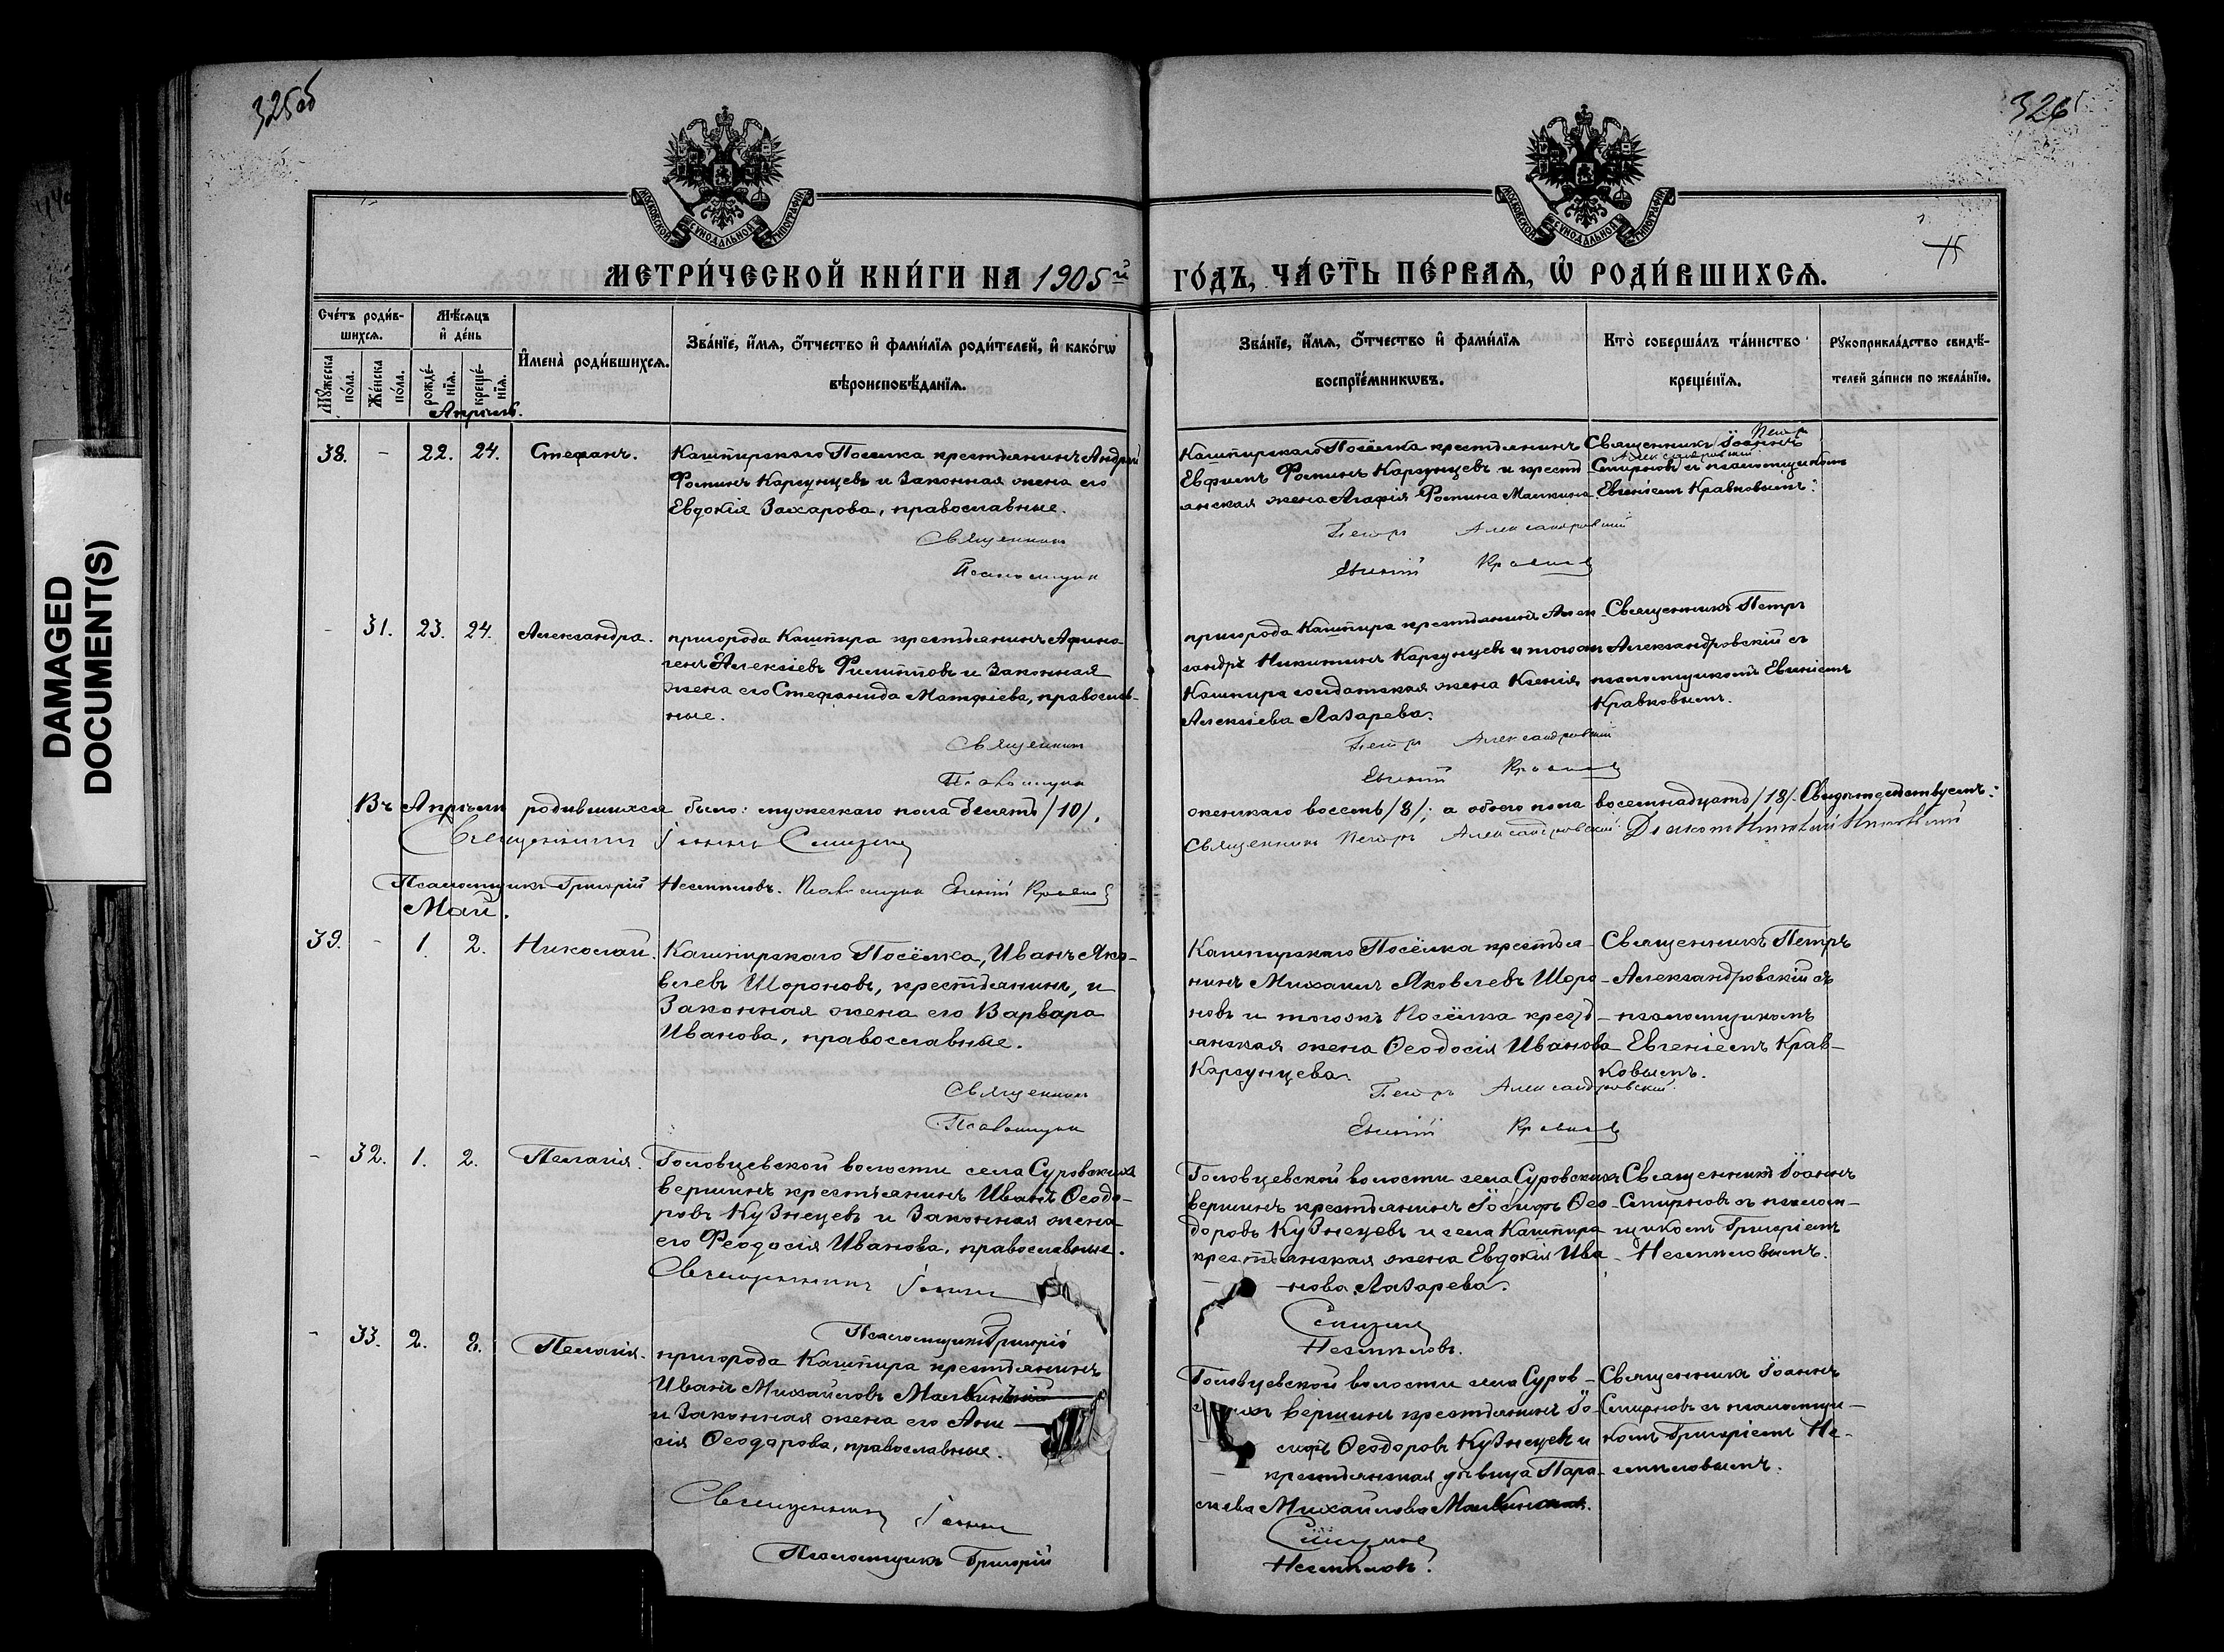 325об
326
МОСКОВСКОЙ СѴНОДАЛЬНОЙ ТИПОГРАФІИ
МОСКОВСКОЙ СѴНОДАЛЬНОЙ ТИПОГРАФІИ
МЕТРИ́ЧЕСКОЙ КНИ́ГИ НА 1905й
ГО́ДЪ, ЧА́СТЬ ПЕ́РВАѦ, Ѡ҆ РОДИ́ВШИХСѦ.
Сче́тъ роди́в-
шихсѧ.
Мꙋжеска по́ла.
Же́нска по́ла.
Мѣ́сѧцъ
и҆ де́нь
рожде́-
нїѧ.
креще́-
нїѧ.
И҆мена̀ роди́вшихсѧ.
Зва́нїе, и҆́мѧ, ѻ҆́тчество и҆ фами́лїѧ роди́телей, и҆ како́гѡ
вѣроисповѣ́данїѧ.
Зва́нїе, и҆́мѧ, ѻ҆́тчество и҆ фами́лїѧ
воспрїе́мникѡвъ.
Кто̀ соверша́лъ та́инство
креще́нїѧ.
Рꙋкоприкла́дство свидѣ́-
телей за́писи по жела́нїю.
Апрѣль.
38. - 22. 24. Стефанъ.
Кашпирскаго Поселка крестьянинъ Андрей
Фоминъ Карсунцевъ и Законная жена его
Евдокія Захарова, православные.
Священникъ
Псаломщикъ
Кашпирскаго Посёлка крестьянинъ
Евфимъ Фоминъ Карсунцевъ и крестъ-
янская жена Агафія Фомина Малкина.
Петръ Александровскій
Евгеній Кравковъ
Священникъ Іоаннъ
Петръ
Александровскій
Смирновъ и псаломщикомъ
Евгеніем Кравковымъ.
- 31. 23. 24. Александра.
пригорода Кашпира крестьянинъ Афино-
генъ Алексіевъ Филипповъ и Законная
жена его Стефанида Матфіева, православ-
ные.
Священникъ
Псаломщикъ
пригорода Кашпира крестьянинъ Алек-
сандръ Никитинъ Карсунцевъ и тогож
Кашпира солдатская жена Ксенія
Алексіева Лазарева.
Петръ Александровскій
Евгеній Кравковъ
Священникъ Петръ
Александровскій съ
псаломщикомъ Евгеніемъ
Кравковымъ.
Въ Апрѣлѣ родившихся было: мужескаго пола десять /10/,
женскаго восемь /8/; а обоего пола восемнадцать /18/. Свидѣтельствуемъ:
Священникъ Іоаннъ Смирновъ
Священникъ Петръ Александровскій. Діаконъ
Псаломщикъ Григорій Несмѣловъ. Псаломщикъ Евгеній Кравковъ
Май.
39. - 1. 2. Николай.
Кашпирскаго Посёлка, Иванъ Яко-
влевъ Шороновъ, крестьянинъ, и
Законная жена его Варвара
Иванова, православные.
Священникъ
Псаломщикъ
Кашпирскаго Посёлка крестья-
нинъ Михаилъ Яковлевъ Шоро-
новъ и тогожъ Посёлка крестъ-
янская жена Ѳеодосія Иванова
Карсунцева.
Петръ Александровскій
Евгеній Кравковъ
Священникъ Петръ
Александровскій съ
псаломщикомъ
Евгеніемъ Крав-
ковымъ.
- 32. 1. 2. Пелагія.
Головцевской волости села Суровскихъ
вершинъ крестьянинъ Иванъ Ѳеодо-
ровъ Кузнецевъ и Законная жена
его Феодосія Иванова, православные.
Священникъ Іоаннъ
Псаломщикъ Григорій
Головцевской волости села Суровскихъ
вершинъ крестьянинъ Іосифъ Ѳео-
доровъ Кузнецевъ и села Кашпира
крестьянская жена Евдокія Ива-
нова Лазарева.
Смирновъ
Несмѣловъ.
Священникъ Іоаннъ
Смирновъ съ псалом-
щикомъ Григоріемъ
Несмѣловымъ.
- 33. 2. 8. Пелагія.
пригорода Кашпира крестьянинъ
Иванъ Михайловъ Малкинъ
и Законная жена его Ани-
сія Ѳеодорова, православные.
Священникъ Іоаннъ
Псаломщикъ Григорій
Головцевской волости села Суров-
вершинъ крестьянинъ Іо-
сифъ Ѳеодоровъ Кузнецевъ и
крестьянская дѣвица Пара-
скева Михайлова Малкина.
Смирновъ
Несмѣловъ.
Священникъ Іоаннъ
Смирновъ съ псаломщи-
комъ Григоріемъ Не-
смѣловымъ.
DAMAGED
DOCUMENT(S)